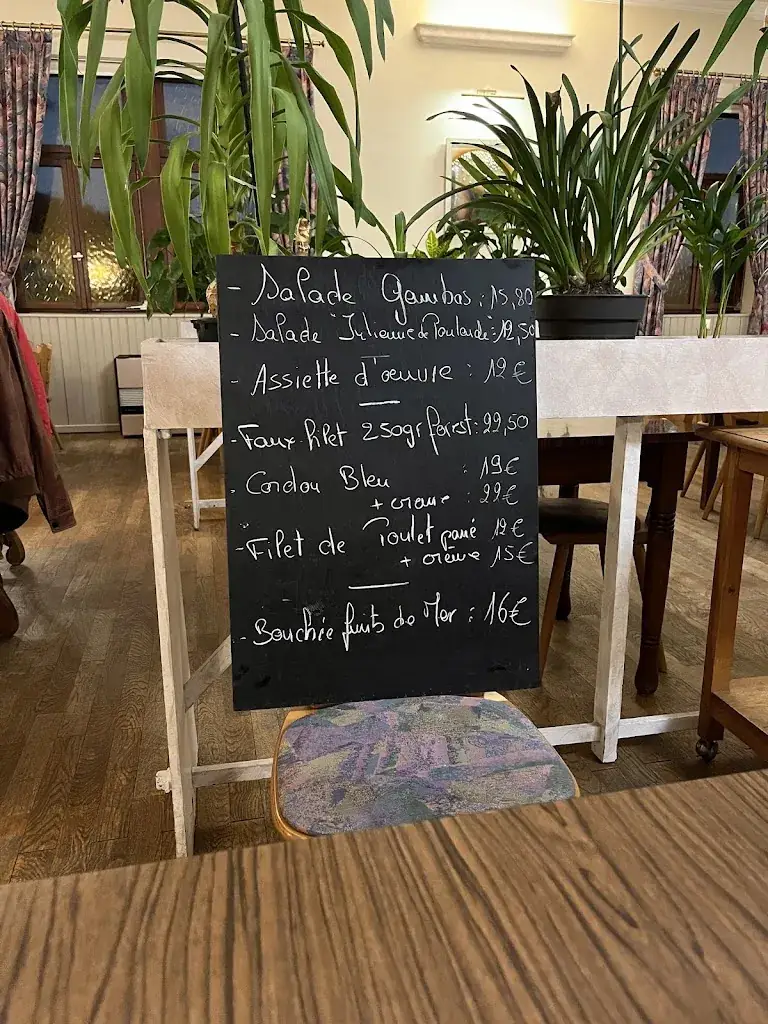 - Salade Gambas : 15,80
- Salade "Julienne de Poularde" : 12,50
- Assiette d'oeuvre : 12€
- Faux filet 250gr forest : 22,50
- Cordon Bleu : 19€
+ crème : 22€
- Filet de Poulet pané 12€
+ crème 15€
- Bouchée fruits de Mer : 16€